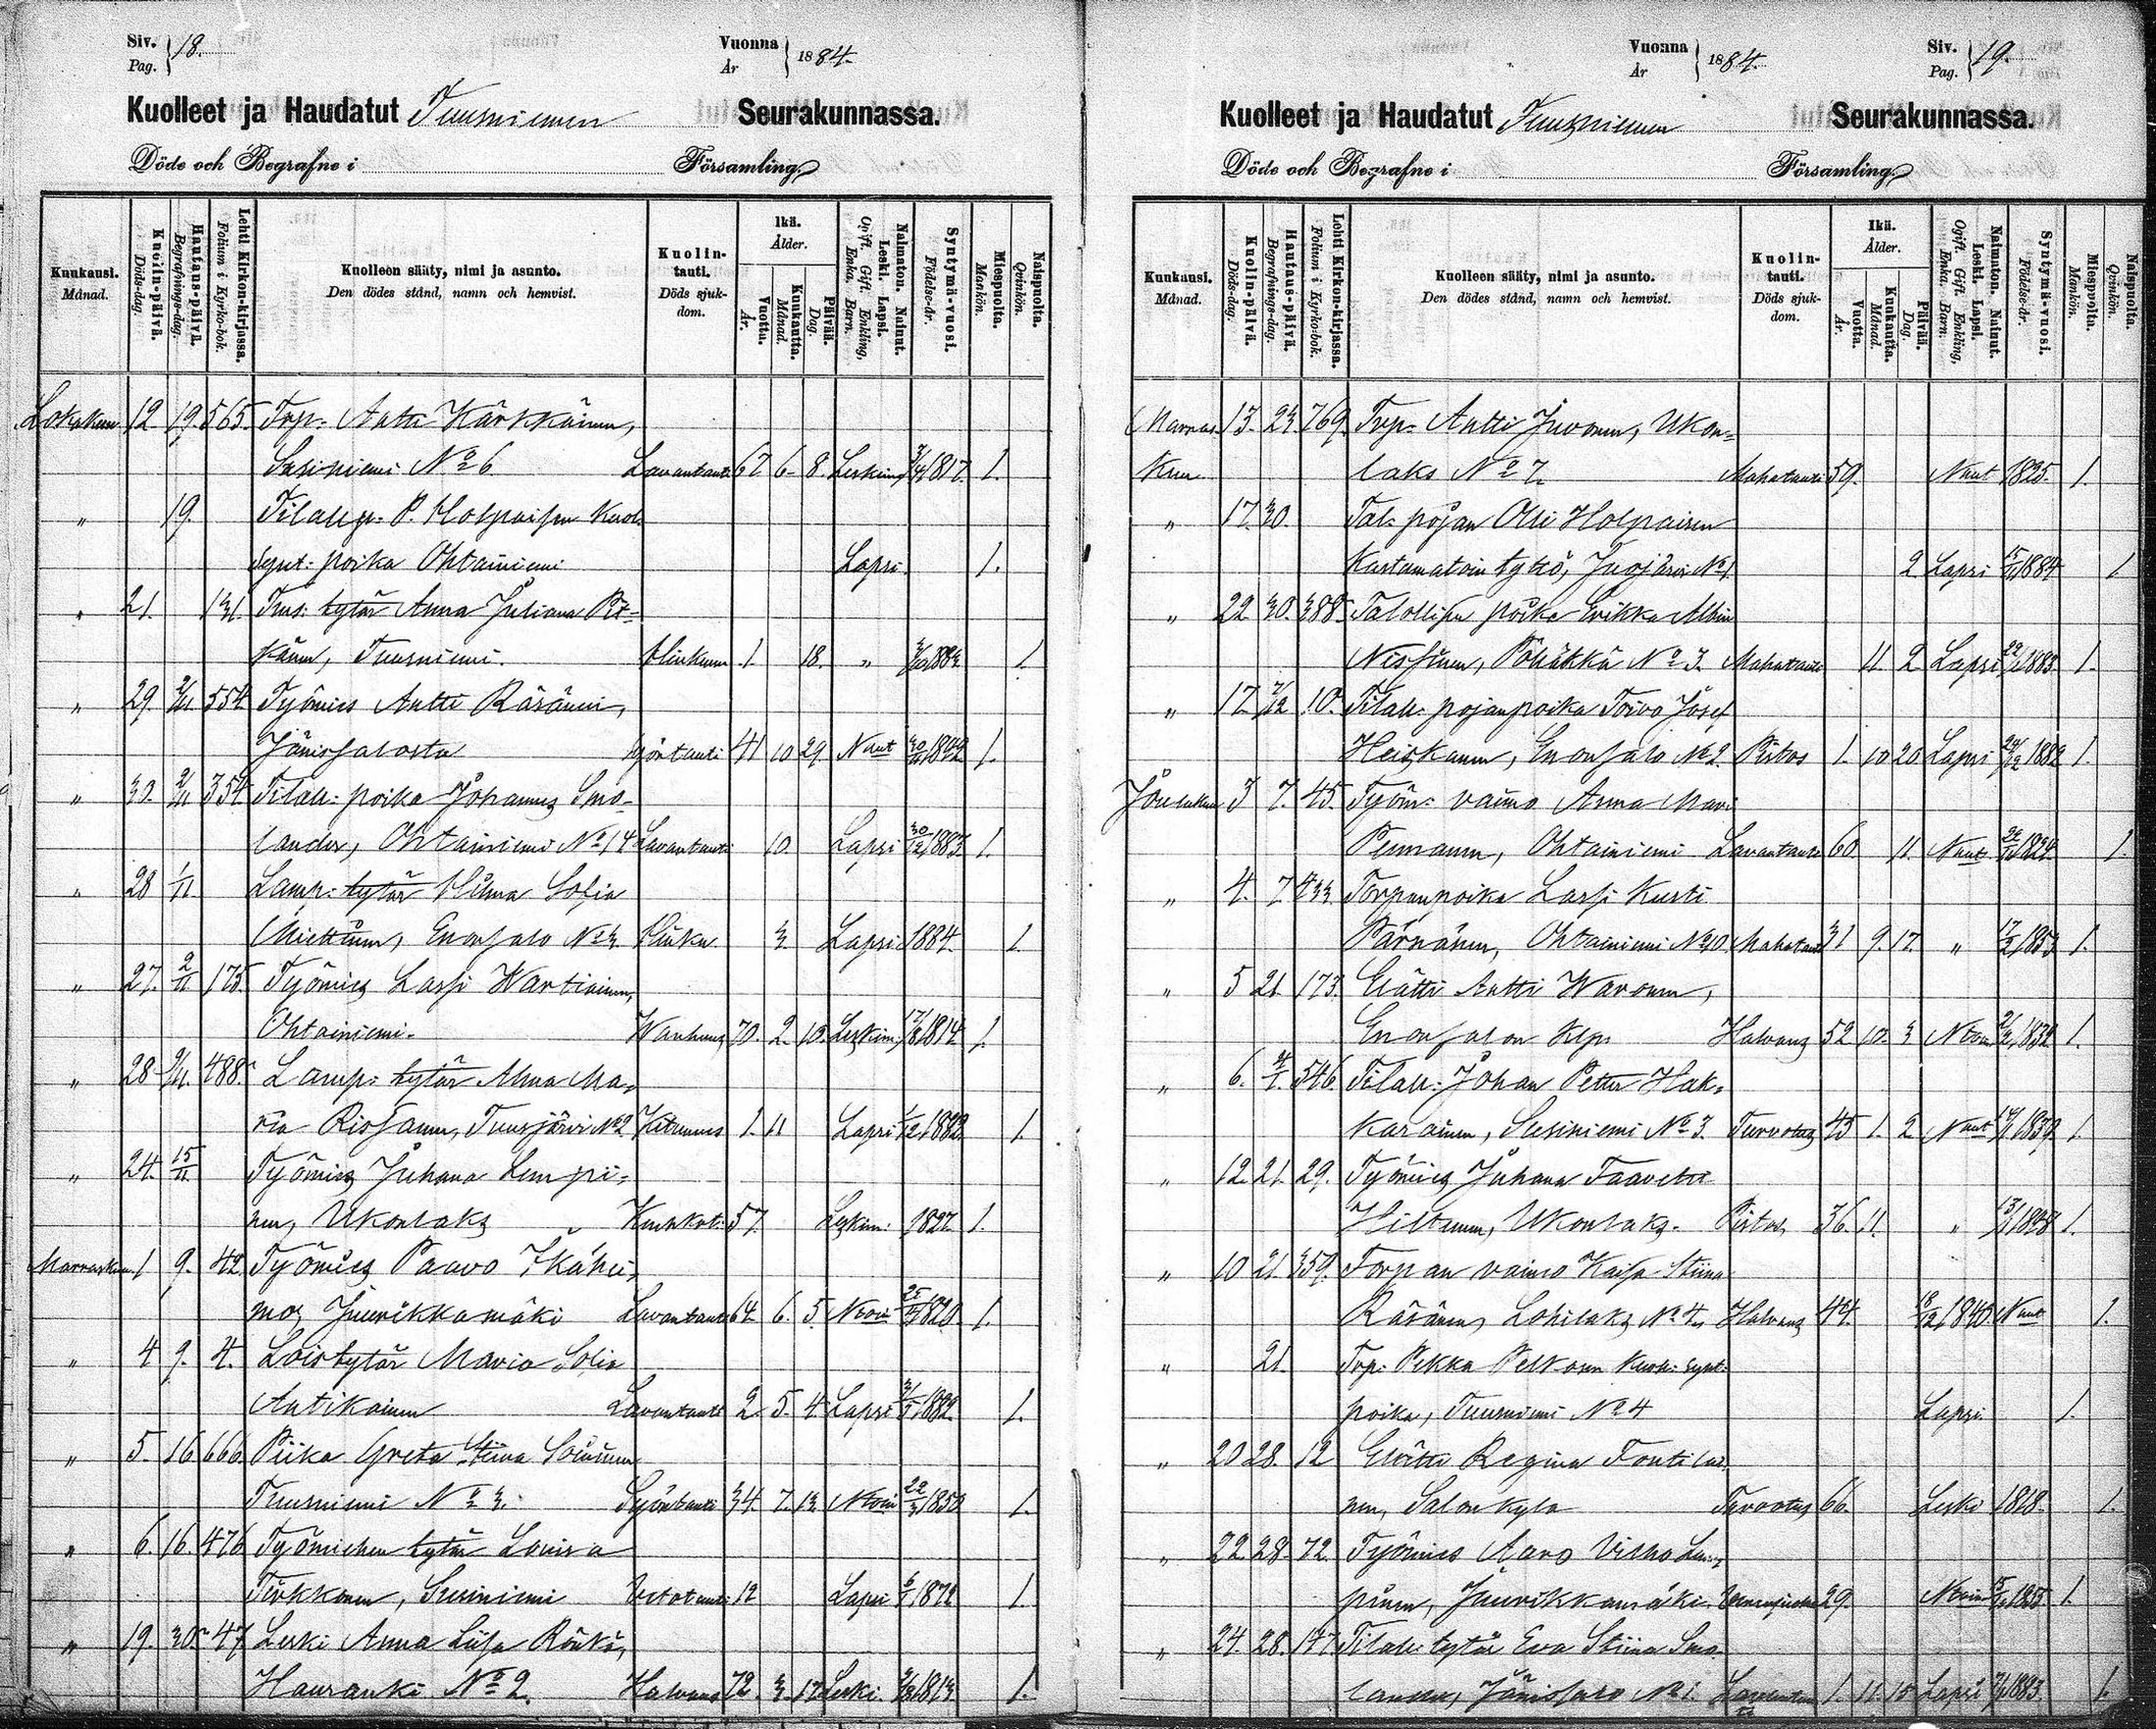 Siv. 18.
Pag.
Vuonna 1884.
År
Kuolleet ja Haudatut Tuusniemen Seurakunnassa.
Döde och Begrafne i Församling.
Kuukausi. Månad.
Kuolin-päivä. Döds-dag.
Hautaus-päivä. Begrafnings-dag.
Lehti Kirkon-kirjassa. Folium i Kyrko-bok.
Kuolleen sääty, nimi ja asunto.
Den dödes stånd, namn och hemvist.
Kuolin-tauti. Döds sjuk-dom.
Ikä. Ålder.
Vuotta. År.
Kuukautta. Månad.
Päivää. Dag.
Naimaton. Nainut. Leski. Lapsi.
Ogift. Gift. Enkling, Enka. Barn.
Syntymä-vuosi. Födelse-år.
Miespuolta. Mankön.
Naispuolta. Qvinkön.
Lokakuu 12 19. 565. Torp: Antti Kärkkäinen,
Susiniemi No 6 Lavantauti 67 6 8. Leskim. 1817. 1.
" 19. Tilall. p. P. Holopaisen kuol.
synt: poika Ohtainiemi Lapsi. 1.
" 21. 131. tytär Anna Juliana Pit=
känen, Tuusniemi. 1 18. " 1883. 1.
" 29. 2/11 554 Työmies Antti Räsänen,
Jänissalosta Syöntauti 41 10 29. Naut 1842 1.
" 30. 2/11 354 Tilall: poika Johannes Smo-
lander, Ohtainiemi No 14 Lavantauti 10. Lapsi 30/12 1883. 1.
" 28 1/11 Lamp: tytär Hilma Sofia
Miettinen, Enonsalo No 3. 3. Lapsi 1884. 1.
" 27. 2/11 175. Työmies Lassi Wartiainen,
Ohtainiemi. Wanhuus 70. 2. 10. Leskim. 17/8 1814 1.
" 28 2/11. 488. Lamp: tytär Alma Ma=
ria Rissanen, Tuusjärvi No 2 Kitumus 1. 11 Lapsi 1/12 1882. 1.
" 24. 15/11 Työmies Juhana Lempi=
nen, Ukonlaks 57. Leskim. 1827. 1.
Marraskuu 1 9. 42. Työmies Paavo Ikähei=
mo, Juurikkamäki Lavantauti 64 6. 5. Naim 1820. 1.
" 4 9. 4. Loistytär Maria Sofia
Antikainen Lavantauti 2. 5. 4 Lapsi 1882. 1.
" 5. 16 666. Piika Greta Stiina Soininen
Tuusniemi No 3. Syöntauti 34 7. 13. Naim 22/3 1850 1.
" 6. 16. 476 Työmiehen tytär Lovisa
Tirkkonen, Susiniemi 12 Lapsi 1872 1.
" 19. 30 47 Leski Anna Liisa Rönkä,
Hauranki No 2. Halvaus 72. 3. 17 Leski. 1813. 1.
Vuonna 1884.
År
Siv. 19.
Pag.
Kuolleet ja Haudatut Tuusniemen Seurakunnassa.
Döde och Begrafne i Församling.
Kuukausi. Månad.
Kuolin-päivä. Döds-dag.
Hautaus-päivä. Begrafnings-dag.
Lehti Kirkon-kirjassa. Folium i Kyrko-bok.
Kuolleen sääty, nimi ja asunto.
Den dödes stånd, namn och hemvist.
Kuolin-tauti. Döds sjuk-dom.
Ikä. Ålder.
Vuotta. År.
Kuukautta. Månad.
Päivää. Dag.
Naimaton. Nainut. Leski. Lapsi.
Ogift. Gift. Enkling, Enka. Barn.
Syntymä-vuosi. Födelse-år.
Miespuolta. Mankön.
Naispuolta. Qvinkön.
Marras 13. 23. 769. Torp: Antti Juvonen, Ukon=
kuu laks No 7. Mahatauti 59. Naut 1825. 1.
" 17. 30. Tal: pojan Olli Holopaisen
Kastamatoin tyttö, Juojärvi No 1. 2 Lapsi 15/11 1884 1
" 22. 30. 388. Talollisen poika Erikka Albin
Nissinen, Pöhäkkä No 3. Mahatauti 11 2 Lapsi 1883 1.
" 17. 7/12 10. Tilall: pojanpoika Toivo Josef
Heiskanen, Enonsalo No 2. Pistos 1. 10 20 Lapsi 1882 1.
Joulukuu 3 7. 45. Työm: vaimo Anna Mari
Pennanen, Ohtainiemi Lavantauti 60. 11. Naut 1824. 1.
" 4. 7. 433 Torpanpoika Lassi Kusti
Pärnänen, Ohtainiemi No 10. Mahataut 31 9. 17. " 17/2 1853 1.
" 5 21. 173. Elätti Antti Waronen,
Enonsalon kylä Halvaus 52 10. 3 Naim 1832 1.
" 6. 546. Tilall: Johan Petter Hak=
karainen, Susiniemi No 3. Turvotus 45 1. 2 Naut 1839 1.
" 12. 21. 29. Työmies Juhana Taavetti
Hiltunen, Ukonlaks. Pistos 36. 11. " 1848 1.
" 10 21. 359. Torpan vaimo Kaisa Stiina
Räsänen, Lohilaks No 4. Halvaus 44. 18/12 1840. Naut 1.
" 21 Torp: Pekka Pelkonen kuoll: synt:
poika, Tuusniemi No 4 Lapsi. 1.
" 20 28. 12 Elätti Regina Tontilai-
nen, Salonkylä 66. Leski 1818. 1.
" 22 28. 72. Työmies Aaro Vilho Lem-
pinen, Juurikkamäki 29. Naim 1855 1.
" 24. 28. 147. Tilall: tytär Eva Stiina Smo-
lander, Jänissalo No 1. Lavantau- 1. 11. 15 Lapsi 1883. 1.
ti